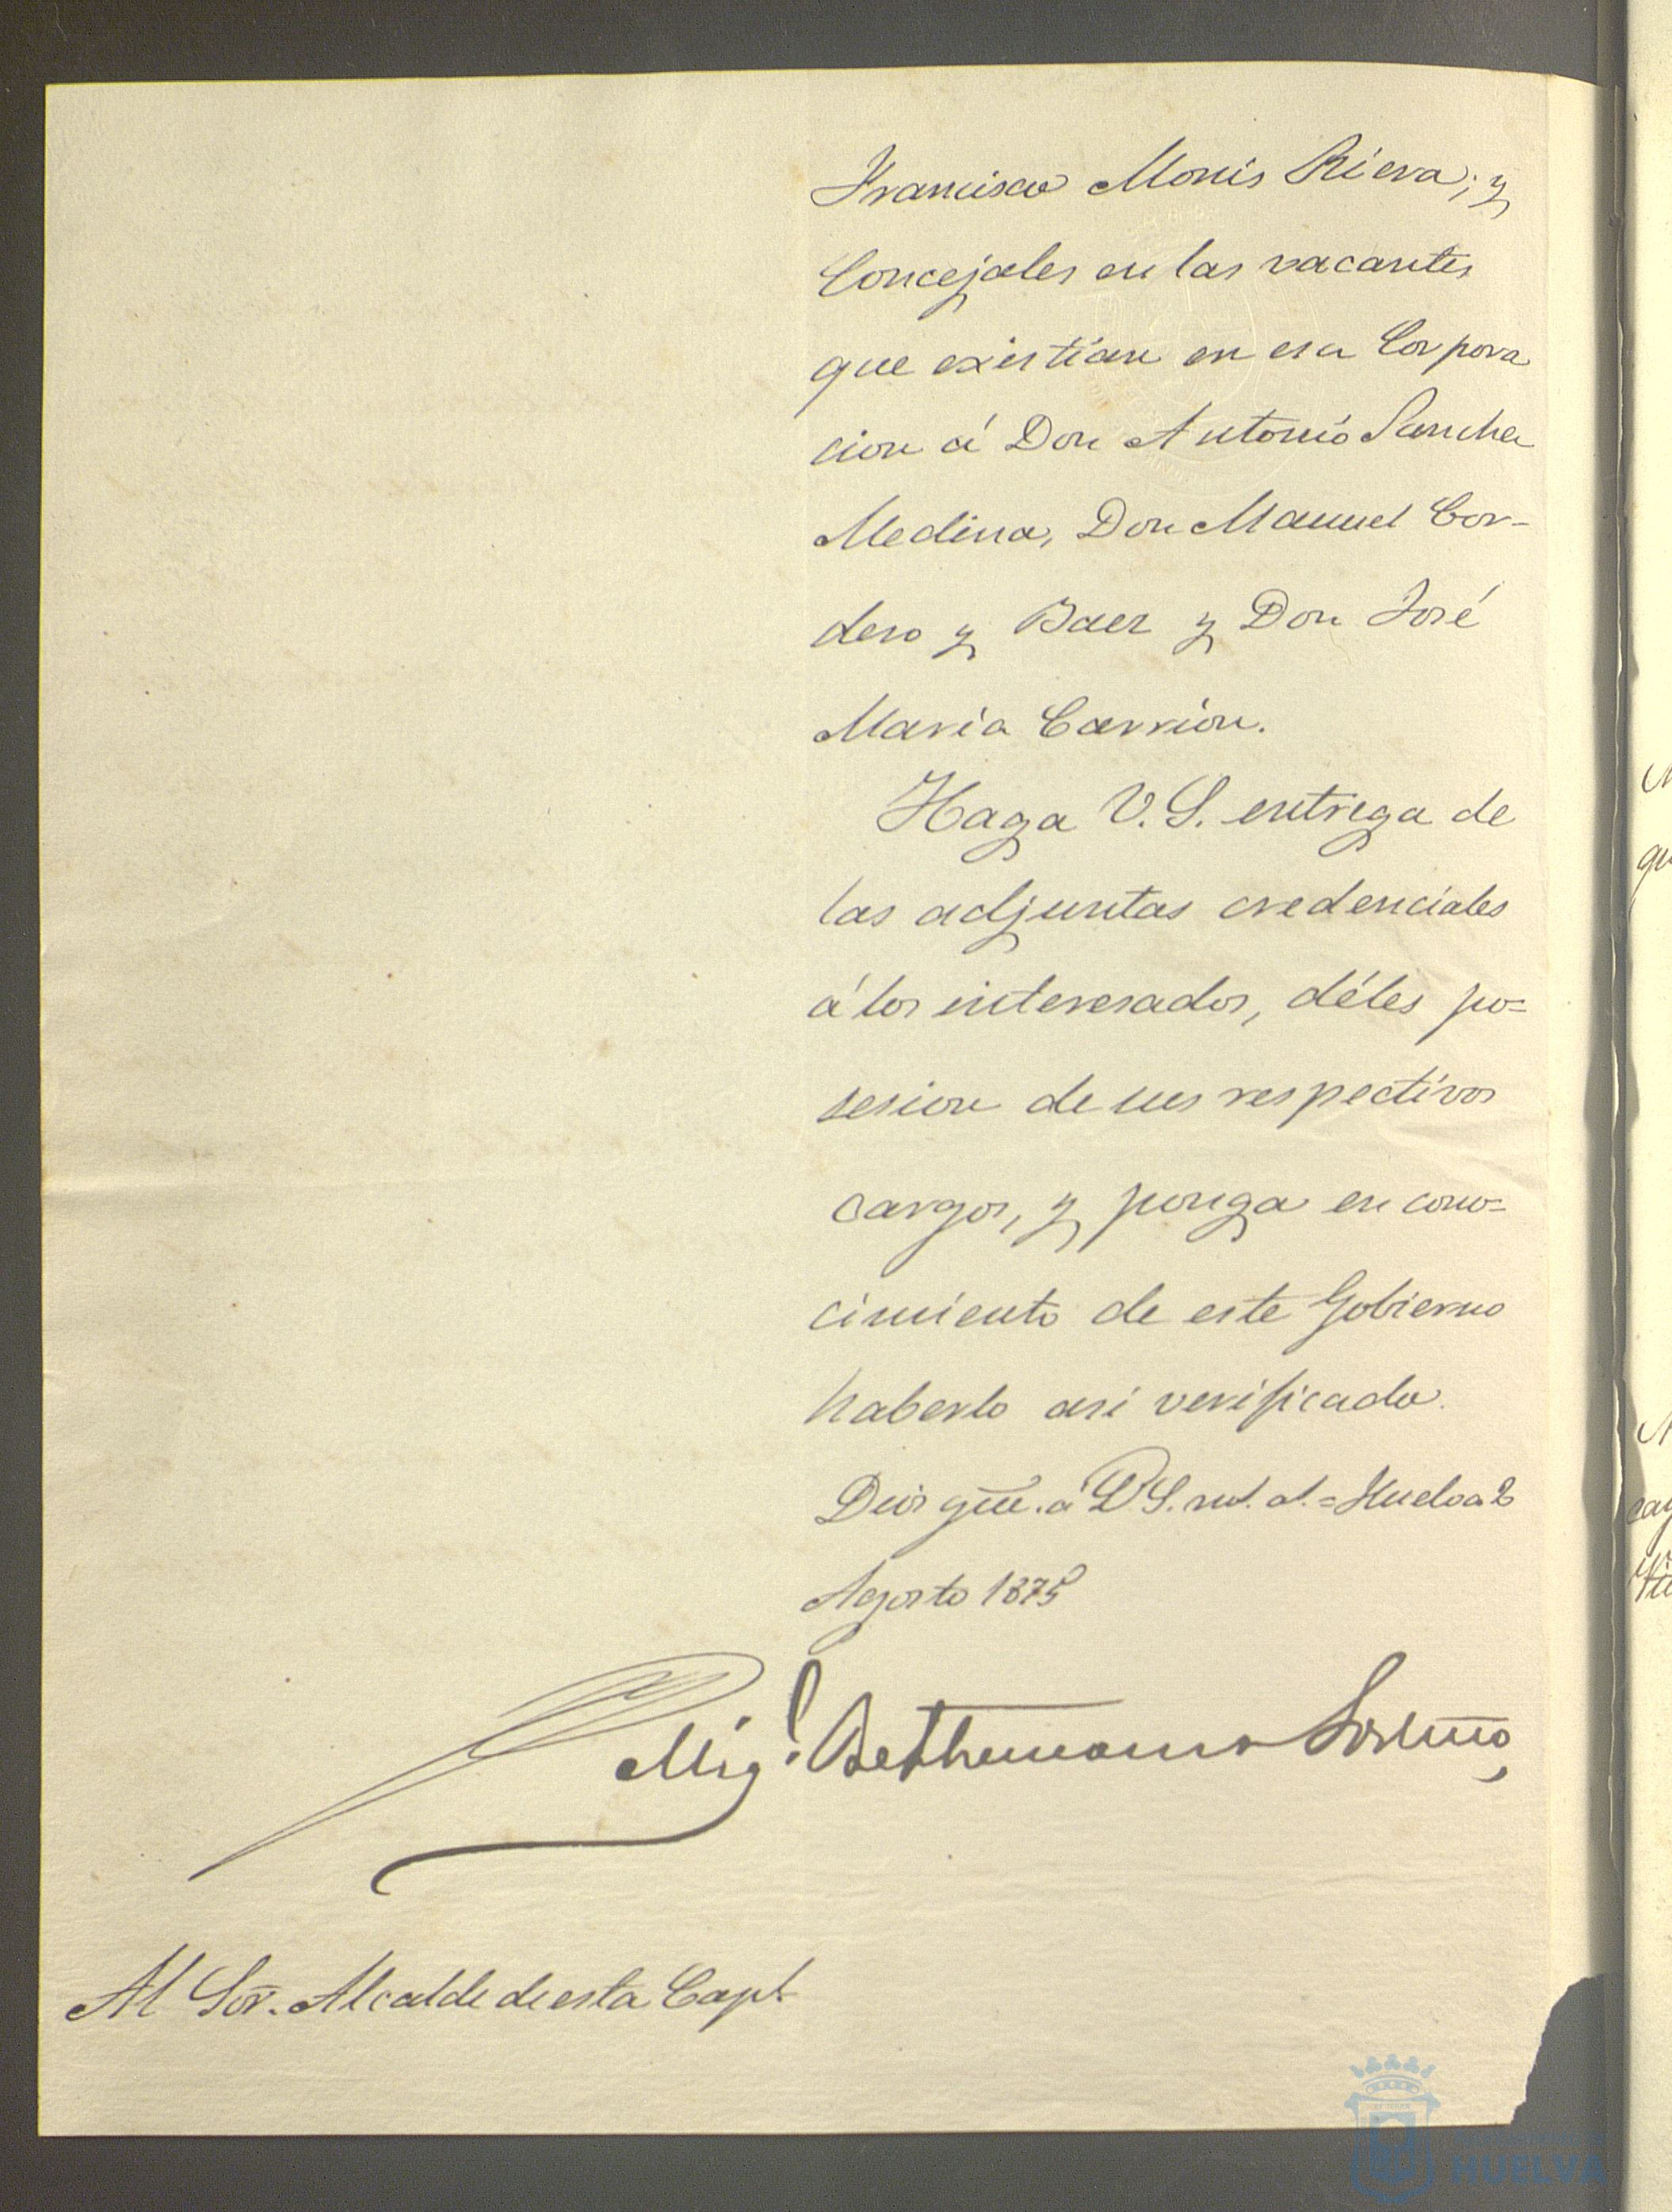 Francisco Monis Riera; y
Concejales en las vacantes
que existian en esa Corpora
cion á Don Antonio Sanchez
Medina, Don Manuel Cor-
dero y Baez y Don José
Maria Carrion.
Haga V. S. entrega de
las adjuntas credenciales
á los interesados, déles po=
sesion de sus respectivos
cargos, y ponga en cono=
cimiento de este Gobierno
haberlo asi verificado.
Dios gue. á V.S. m.s a.s = Huelva 2
Agosto 1875
Mig.l Bethemano
Al Sor. Alcalde de esta Capl.
HUELVA